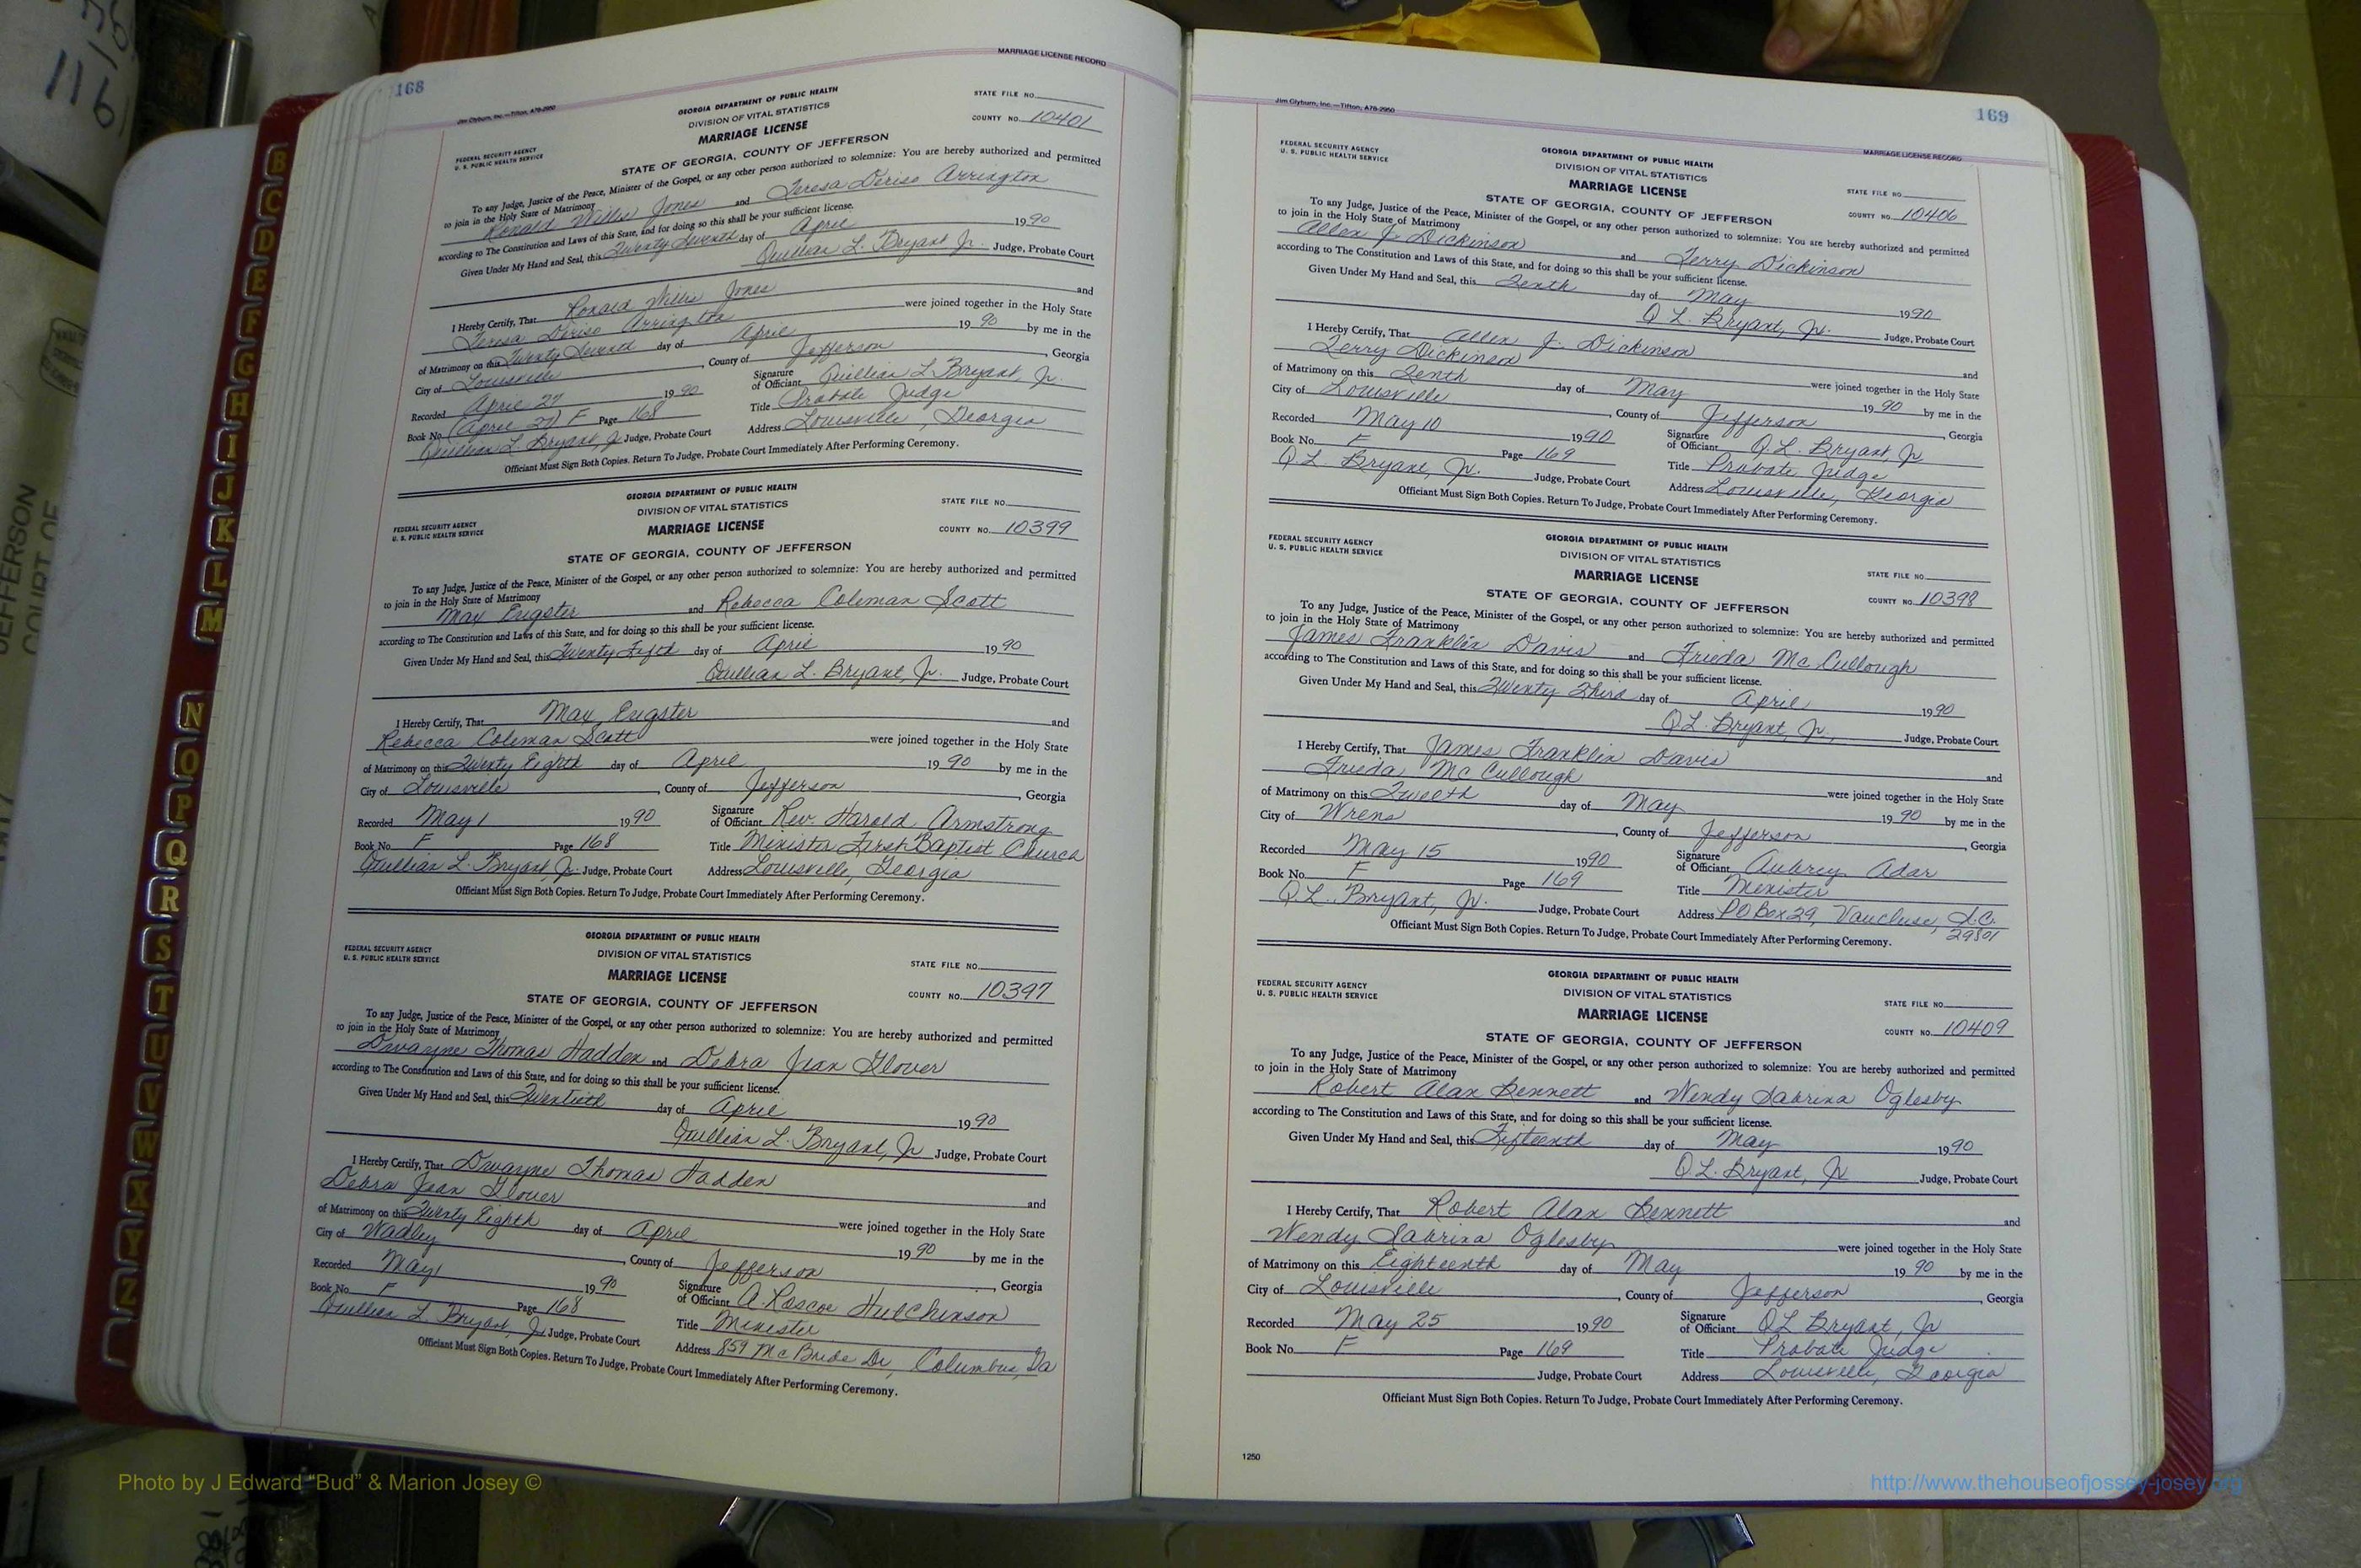 168
MARRIAGE LICENSE RECORD
Jim Clyburn, Inc.—Tifton, A78-2950
GEORGIA DEPARTMENT OF PUBLIC HEALTH
DIVISION OF VITAL STATISTICS
MARRIAGE LICENSE
STATE OF GEORGIA, COUNTY OF JEFFERSON
STATE FILE NO.
COUNTY NO. 10401
FEDERAL SECURITY AGENCY
U. S. PUBLIC HEALTH SERVICE
To any Judge, Justice of the Peace, Minister of the Gospel, or any other person authorized to solemnize: You are hereby authorized and permitted
to join in the Holy State of Matrimony
Ronald Willis Jones and Teresa Deriso Arrington
according to The Constitution and Laws of this State, and for doing so this shall be your sufficient license.
Given Under My Hand and Seal, this Twenty Seventh day of April 1990
Quillian L. Bryant Jr. Judge, Probate Court
I Hereby Certify, That Ronald Willis Jones and
Teresa Deriso Arrington were joined together in the Holy State
of Matrimony on this Twenty Seventh day of April 1990 by me in the
City of Louisville, County of Jefferson, Georgia
Recorded April 27 1990 Signature of Officiant Quillian L Bryant, Jr.
Book No. (April 27) F Page 168 Title Probate Judge
Quillian L. Bryant, Jr Judge, Probate Court Address Louisville, Georgia
Officiant Must Sign Both Copies. Return To Judge, Probate Court Immediately After Performing Ceremony.
GEORGIA DEPARTMENT OF PUBLIC HEALTH
DIVISION OF VITAL STATISTICS
MARRIAGE LICENSE
STATE OF GEORGIA, COUNTY OF JEFFERSON
STATE FILE NO.
COUNTY NO. 10399
FEDERAL SECURITY AGENCY
U. S. PUBLIC HEALTH SERVICE
To any Judge, Justice of the Peace, Minister of the Gospel, or any other person authorized to solemnize: You are hereby authorized and permitted
to join in the Holy State of Matrimony
Max Eugster and Rebecca Coleman Scott
according to The Constitution and Laws of this State, and for doing so this shall be your sufficient license.
Given Under My Hand and Seal, this Twenty Fifth day of April 1990
Quillian L. Bryant, Jr. Judge, Probate Court
I Hereby Certify, That Max Eugster and
Rebecca Coleman Scott were joined together in the Holy State
of Matrimony on this Twenty Eighth day of April 1990 by me in the
City of Louisville, County of Jefferson, Georgia
Recorded May 1 1990 Signature of Officiant Rev. Harold Armstrong
Book No. F Page 168 Title Minister First Baptist Church
Quillian L. Bryant, Jr. Judge, Probate Court Address Louisville, Georgia
Officiant Must Sign Both Copies. Return To Judge, Probate Court Immediately After Performing Ceremony.
GEORGIA DEPARTMENT OF PUBLIC HEALTH
DIVISION OF VITAL STATISTICS
MARRIAGE LICENSE
STATE OF GEORGIA, COUNTY OF JEFFERSON
STATE FILE NO.
COUNTY NO. 10397
FEDERAL SECURITY AGENCY
U. S. PUBLIC HEALTH SERVICE
To any Judge, Justice of the Peace, Minister of the Gospel, or any other person authorized to solemnize: You are hereby authorized and permitted
to join in the Holy State of Matrimony
Dwayne Thomas Hadden and Debra Jean Glover
according to The Constitution and Laws of this State, and for doing so this shall be your sufficient license.
Given Under My Hand and Seal, this Twentieth day of April 1990
Quillian L. Bryant, Jr Judge, Probate Court
I Hereby Certify, That Dwayne Thomas Hadden and
Debra Jean Glover were joined together in the Holy State
of Matrimony on this Twenty Eighth day of April 1990 by me in the
City of Wadley, County of Jefferson, Georgia
Recorded May 1 1990 Signature of Officiant A. Roscoe Hutchinson
Book No. F Page 168 Title Minister
Quillian L. Bryant, Jr Judge, Probate Court Address 859 McBride Dr, Columbus, Ga
Officiant Must Sign Both Copies. Return To Judge, Probate Court Immediately After Performing Ceremony.
169
Jim Clyburn, Inc.—Tifton, A78-2950
MARRIAGE LICENSE RECORD
FEDERAL SECURITY AGENCY
U. S. PUBLIC HEALTH SERVICE
GEORGIA DEPARTMENT OF PUBLIC HEALTH
DIVISION OF VITAL STATISTICS
MARRIAGE LICENSE
STATE OF GEORGIA, COUNTY OF JEFFERSON
STATE FILE NO.
COUNTY NO. 10406
To any Judge, Justice of the Peace, Minister of the Gospel, or any other person authorized to solemnize: You are hereby authorized and permitted
to join in the Holy State of Matrimony
Allen J. Dickinson and Terry Dickinson
according to The Constitution and Laws of this State, and for doing so this shall be your sufficient license.
Given Under My Hand and Seal, this Tenth day of May 1990
Q L. Bryant, Jr. Judge, Probate Court
I Hereby Certify, That Allen J. Dickinson and
Terry Dickinson were joined together in the Holy State
of Matrimony on this Tenth day of May 1990 by me in the
City of Louisville, County of Jefferson, Georgia
Recorded May 10 1990 Signature of Officiant Q.L. Bryant Jr
Book No. F Page 169 Title Probate Judge
Q.L. Bryant, Jr. Judge, Probate Court Address Louisville, Georgia
Officiant Must Sign Both Copies. Return To Judge, Probate Court Immediately After Performing Ceremony.
FEDERAL SECURITY AGENCY
U. S. PUBLIC HEALTH SERVICE
GEORGIA DEPARTMENT OF PUBLIC HEALTH
DIVISION OF VITAL STATISTICS
MARRIAGE LICENSE
STATE OF GEORGIA, COUNTY OF JEFFERSON
STATE FILE NO.
COUNTY NO. 10398
To any Judge, Justice of the Peace, Minister of the Gospel, or any other person authorized to solemnize: You are hereby authorized and permitted
to join in the Holy State of Matrimony
James Franklin Davis and Frieda McCullough
according to The Constitution and Laws of this State, and for doing so this shall be your sufficient license.
Given Under My Hand and Seal, this Twenty Third day of April 1990
Q L. Bryant, Jr. Judge, Probate Court
I Hereby Certify, That James Franklin Davis and
Frieda McCullough were joined together in the Holy State
of Matrimony on this day of May 1990 by me in the
City of Wrens, County of Jefferson, Georgia
Recorded May 15 1990 Signature of Officiant Aubrey Adar
Book No. F Page 169 Title Minister
Q L. Bryant, Jr. Judge, Probate Court Address PO Box 29, Vaucluse, S.C.
29801
Officiant Must Sign Both Copies. Return To Judge, Probate Court Immediately After Performing Ceremony.
FEDERAL SECURITY AGENCY
U. S. PUBLIC HEALTH SERVICE
GEORGIA DEPARTMENT OF PUBLIC HEALTH
DIVISION OF VITAL STATISTICS
MARRIAGE LICENSE
STATE OF GEORGIA, COUNTY OF JEFFERSON
STATE FILE NO.
COUNTY NO. 10409
To any Judge, Justice of the Peace, Minister of the Gospel, or any other person authorized to solemnize: You are hereby authorized and permitted
to join in the Holy State of Matrimony
Robert Alan Bennett and Wendy Sabrina Oglesby
according to The Constitution and Laws of this State, and for doing so this shall be your sufficient license.
Given Under My Hand and Seal, this Fifteenth day of May 1990
Q.L. Bryant, Jr Judge, Probate Court
I Hereby Certify, That Robert Alan Bennett and
Wendy Sabrina Oglesby were joined together in the Holy State
of Matrimony on this Eighteenth day of May 1990 by me in the
City of Louisville, County of Jefferson, Georgia
Recorded May 25 1990 Signature of Officiant QL Bryant, Jr
Book No. F Page 169 Title Probate Judge
Judge, Probate Court Address Louisville, Georgia
Officiant Must Sign Both Copies. Return To Judge, Probate Court Immediately After Performing Ceremony.
1250
B
C
D
E
F
G
H
I
J
K
L
M
N
O
P
Q
R
S
T
U
V
W
X
Y
Z
JEFFERSON
COURT OF
Photo by J Edward “Bud” & Marion Josey ©
http://www.thehouseofjossey-josey.org